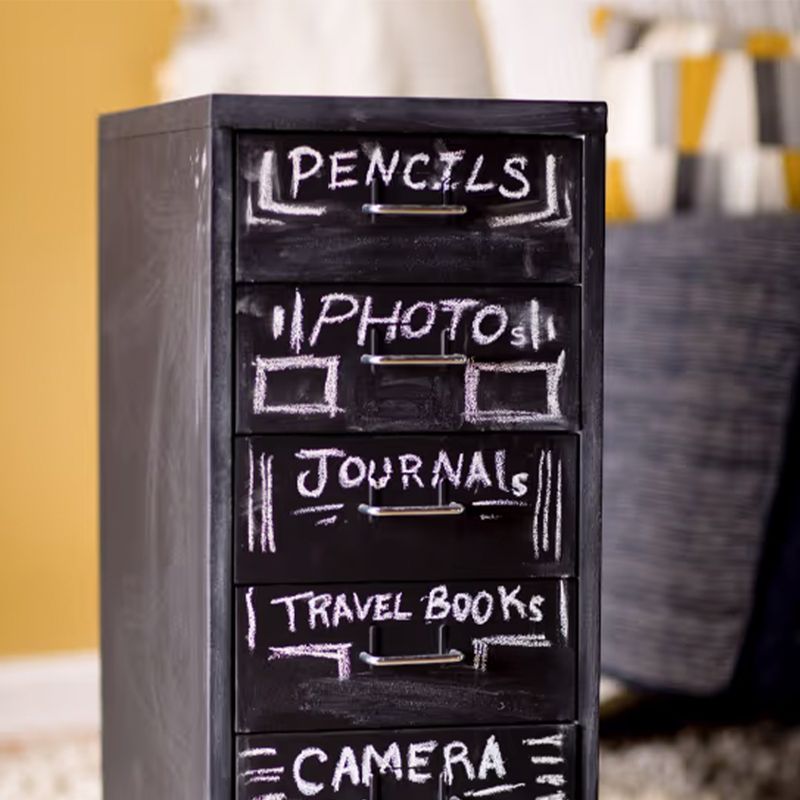 PENCILS
PHOTOs
JOURNAls
TRAVEL BOOKs
CAMERA